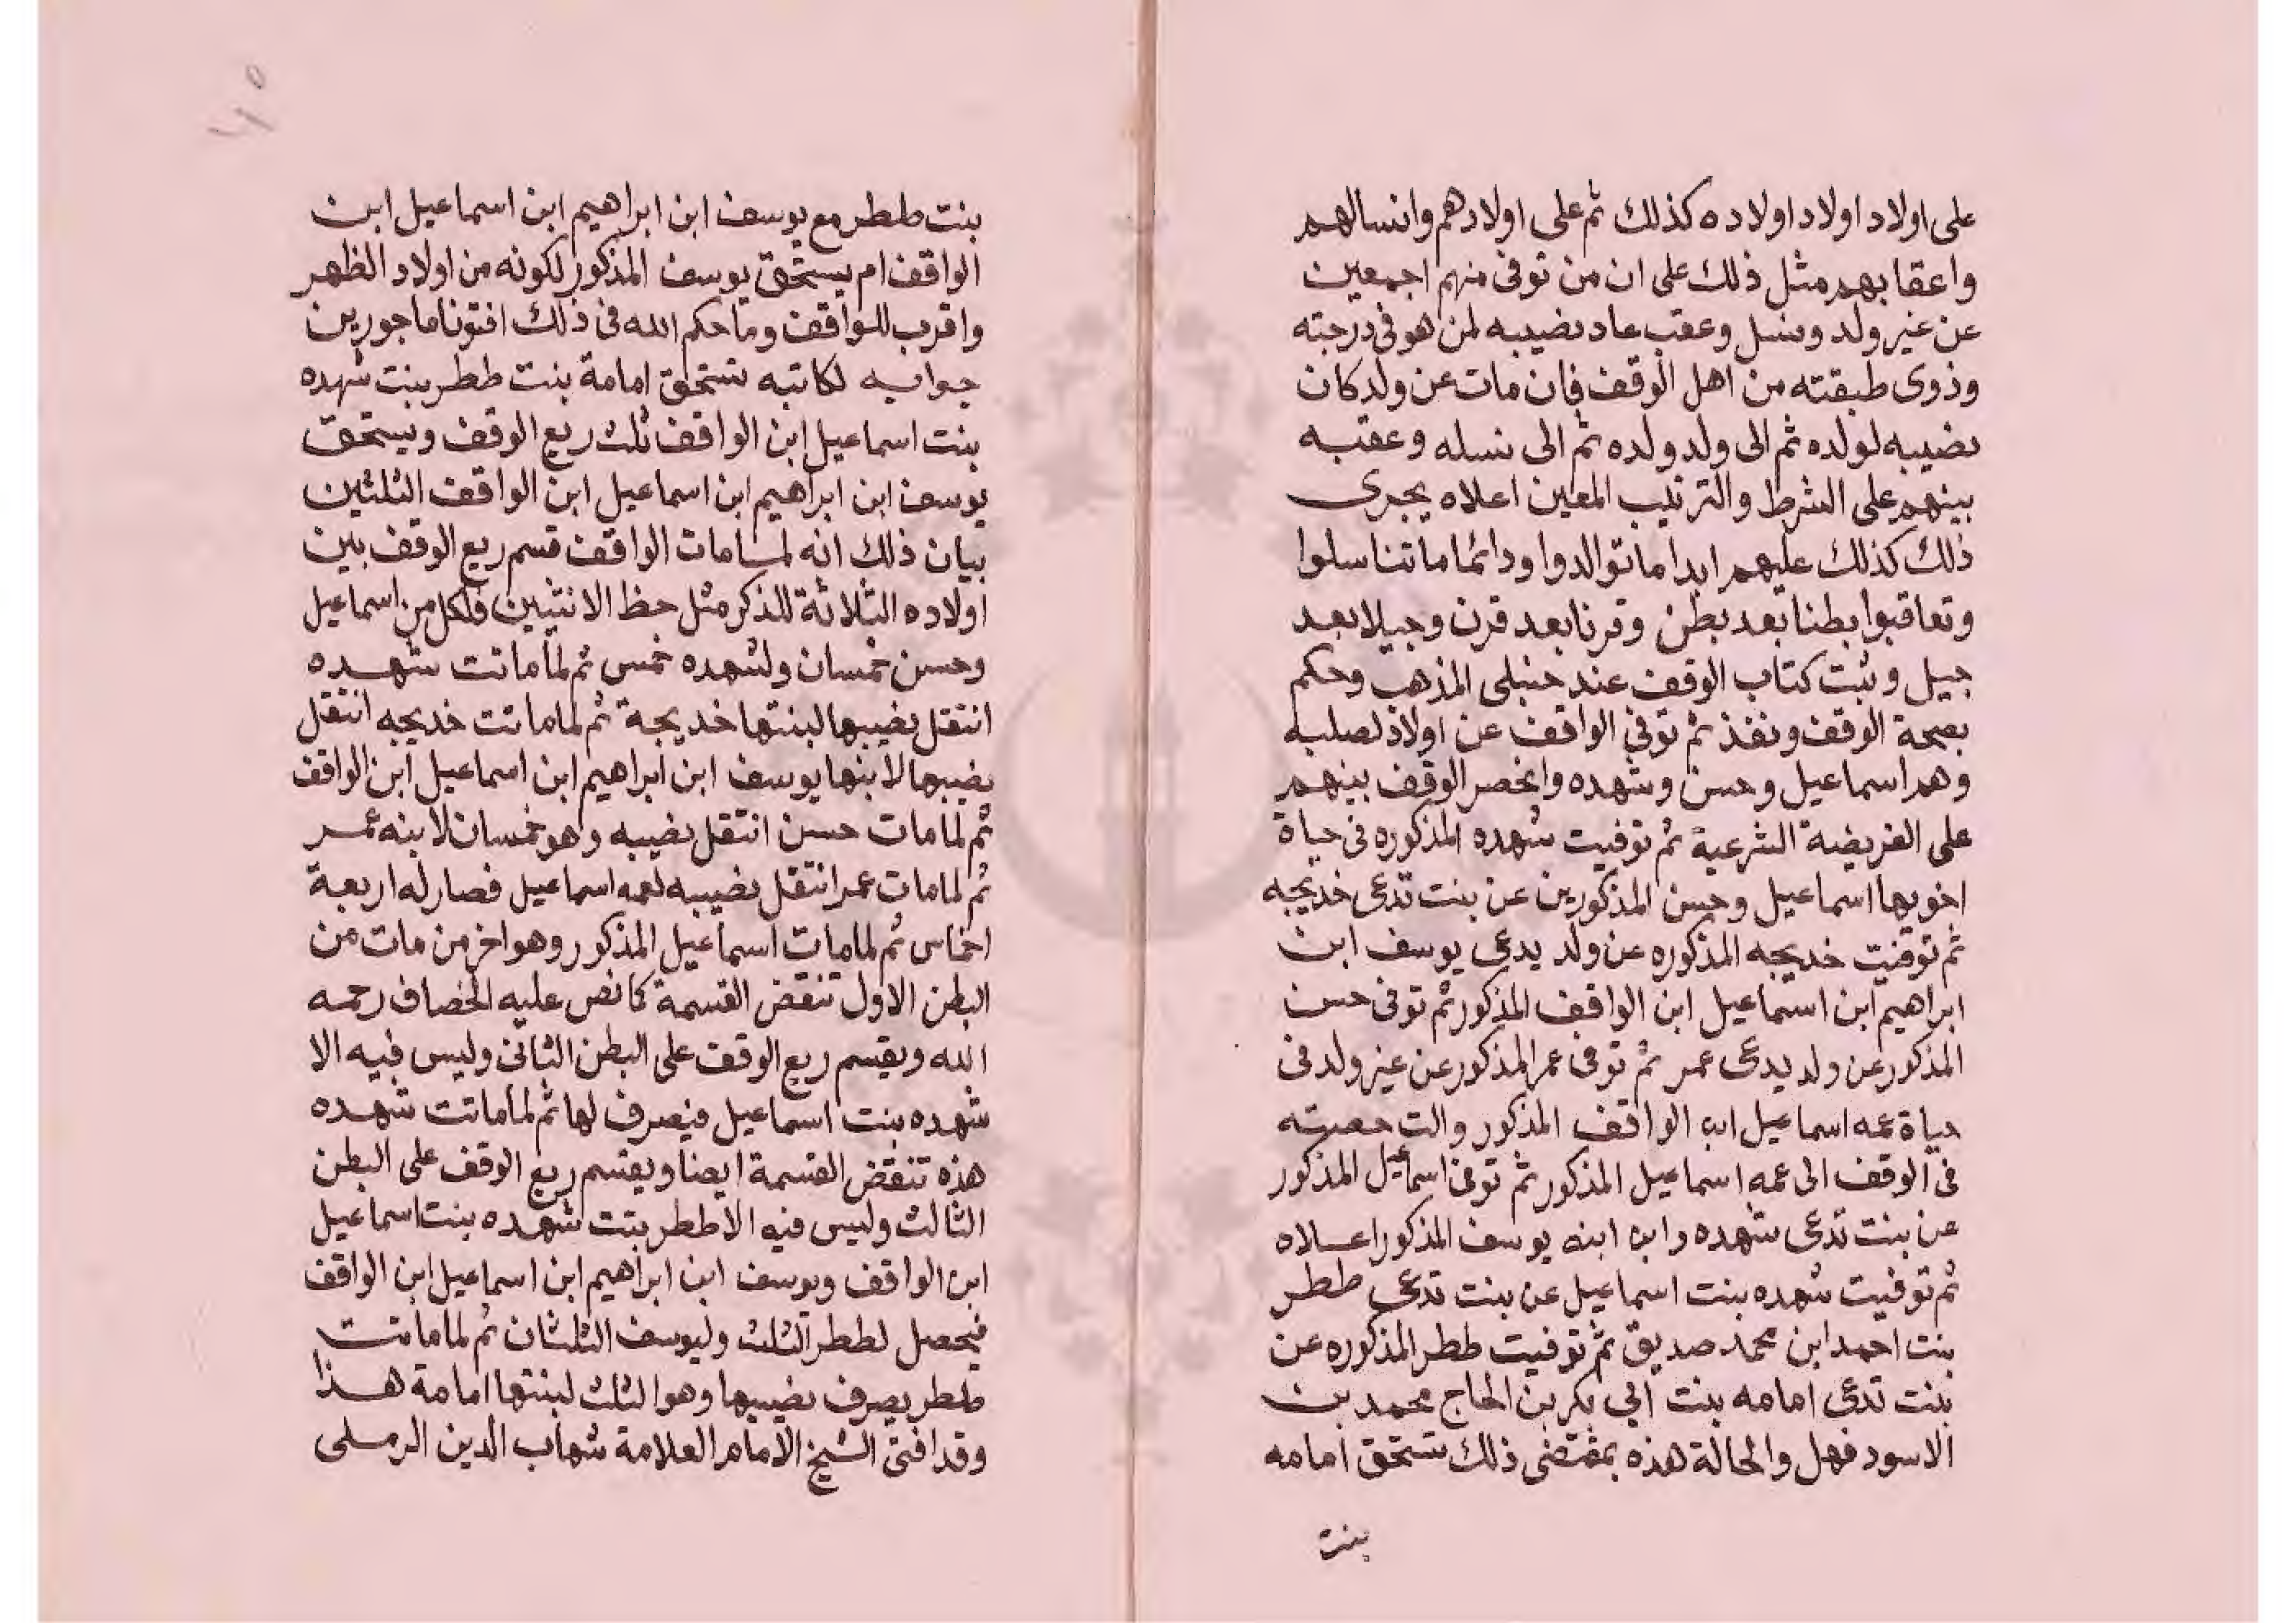 على اولاد اولاد اولاده كذلك ثم على اولادهم وانسالهم
واعقابهم مثل ذلك على ان من توفى منهم اجمعين
عن غير ولد ونسل وعقب عاد نصيبه لمن هو فى درجته
وذوى طبقته من اهل الوقف فان مات عن ولد كان
نصيبه لولده ثم الى ولد ولده ثم الى نسله وعقبه
بينهم على الشرط والترتيب المعين اعلاه يجرى
ذلك كذلك عليهم ابدا ماتوالدوا ودائما ماتناسلوا
وتعاقبوا بطنا بعد بطن وقرنا بعد قرن وجيلا بعد
جيل وثبت كتاب الوقف عند حنبلى المذهب وحكم
بصحة الوقف ونفذ ثم توفي الواقف عن اولاد لصلبه
وهم اسماعيل وحسن وشهده وانحصر الوقف بينهم
على الفريضة الشرعية ثم توفيت شهده المذكوره فى حياة
اخويها اسماعيل وحسن المذكورين عن بنت تدعى خديجه
ثم توفيت خديجه المذكوره عن ولد يدعى يوسف ابن
ابراهيم ابن اسماعيل ابن الواقف المذكور ثم توفى حسن
المذكور عن ولد يدعى عمر ثم توفى عمر المذكور عن غير ولد فى
حياة عمه اسماعيل ابن الواقف المذكور والت حصته
فى الوقف الى عمه اسماعيل المذكور ثم توفى اسماعيل المذكور
عن بنت تدعى شهده وابن ابنه يوسف المذكور اعلاه
ثم توفيت شهده بنت اسماعيل عن بنت تدعى ططر
بنت احمد ابن محمد صديق ثم توفيت ططر المذكوره عن
بنت تدعى امامه بنت ابي بكر بن الحاج محمد بن
الاسود فهل والحالة هذه بمقتضى ذلك تستحق امامه
بنت
١٥
بنت ططر مع يوسف ابن ابراهيم ابن اسماعيل ابن
الواقف ام يستحق يوسف المذكور لكونه من اولاد الظهر
واقرب للواقف وما حكم الله فى ذلك افتونا ماجورين
جوابه لكاتبه تستحق امامة بنت ططر بنت شهده
بنت اسماعيل ابن الواقف ثلث ريع الوقف ويستحق
يوسف ابن ابراهيم ابن اسماعيل ابن الواقف الثلثين
بيان ذلك انه لما مات الواقف قسم ريع الوقف بين
اولاده الثلاثة للذكر مثل حظ الانثيين فلكل من اسماعيل
وحسن خمسان ولشهده خمس ثم لما ماتت شهده
انتقل نصيبها لبنتها خديجة ثم لما ماتت خديجه انتقل
نصيبها لابنها يوسف ابن ابراهيم ابن اسماعيل ابن الواقف
ثم لما مات حسن انتقل نصيبه وهو خمسان لابنه عمر
ثم لما مات عمر انتقل نصيبه لعمه اسماعيل فصار له اربعة
اخماس ثم لما مات اسماعيل المذكور وهو اخر من مات من
البطن الاول تنقض القسمة كما نص عليه الخصاف رحمه
الله ويقسم ريع الوقف على البطن الثانى وليس فيه الا
شهده بنت اسماعيل فيصرف لها ثم لما ماتت شهده
هذه تنقض القسمة ايضا ويقسم ريع الوقف على البطن
الثالث وليس فيه الا ططر بنت شهده بنت اسماعيل
ابن الواقف ويوسف ابن ابراهيم ابن اسماعيل ابن الواقف
فيحصل لططر الثلث وليوسف الثلثان ثم لما ماتت
ططر يصرف نصيبها وهو الثلث لبنتها امامة هذا
وقد افتى الشيخ الامام العلامة شهاب الدين الرملى